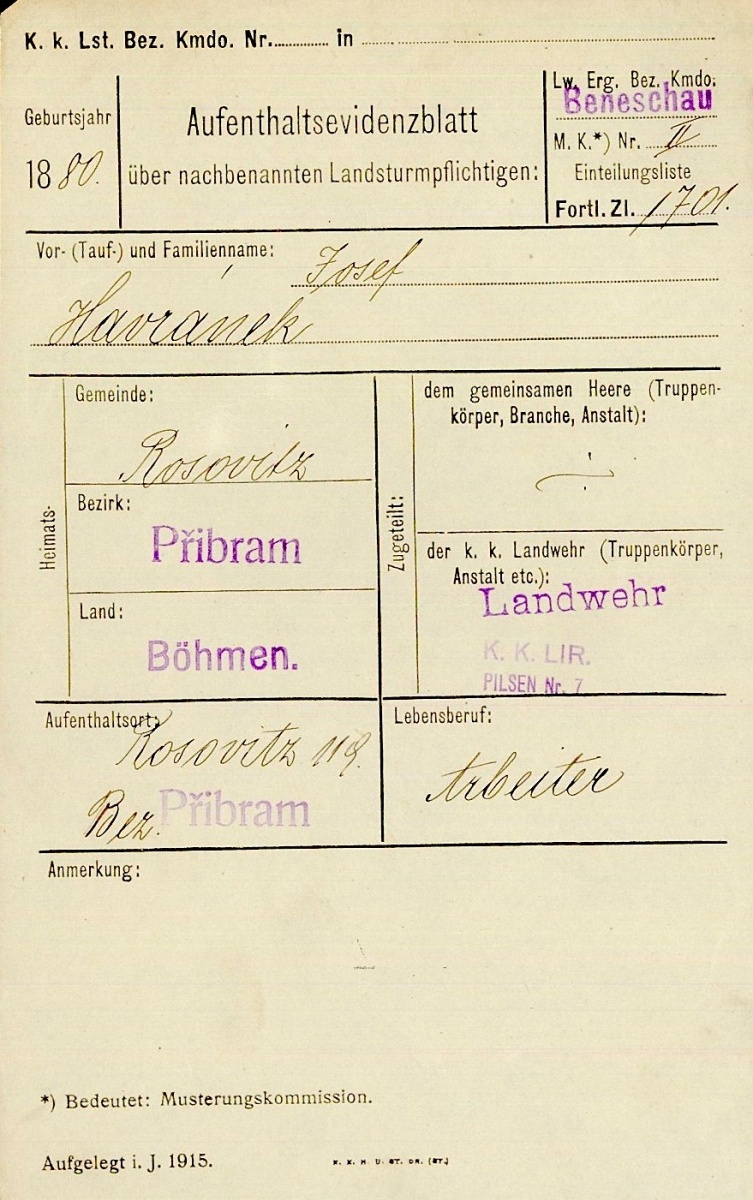 K. k. Lst. Bez. Kmdo. Nr. in
Geburtsjahr
1880.
Aufenthaltsevidenzblatt
über nachbenannten Landsturmpflichtigen:
Lw. Erg. Bez. Kmdo:
Beneschau
M. K.*) Nr. II
Einteilungsliste
Fortl. Zl. 1701.
Vor- (Tauf-) und Familienname: Josef
Havránek
Heimats-
Gemeinde:
Rosovitz
Bezirk:
Přibram
Land:
Böhmen.
Zugeteilt:
dem gemeinsamen Heere (Truppen-
körper, Branche, Anstalt):
der k. k. Landwehr (Truppenkörper,
Anstalt etc.):
Landwehr
K. K. LIR.
PILSEN Nr. 7
Aufenthaltsort:
Rosovitz 119.
Bez. Přibram
Lebensberuf:
Arbeiter
Anmerkung:
*) Bedeutet: Musterungskommission.
Aufgelegt i. J. 1915.
K. K. H. U. ST. DR. (ST.)